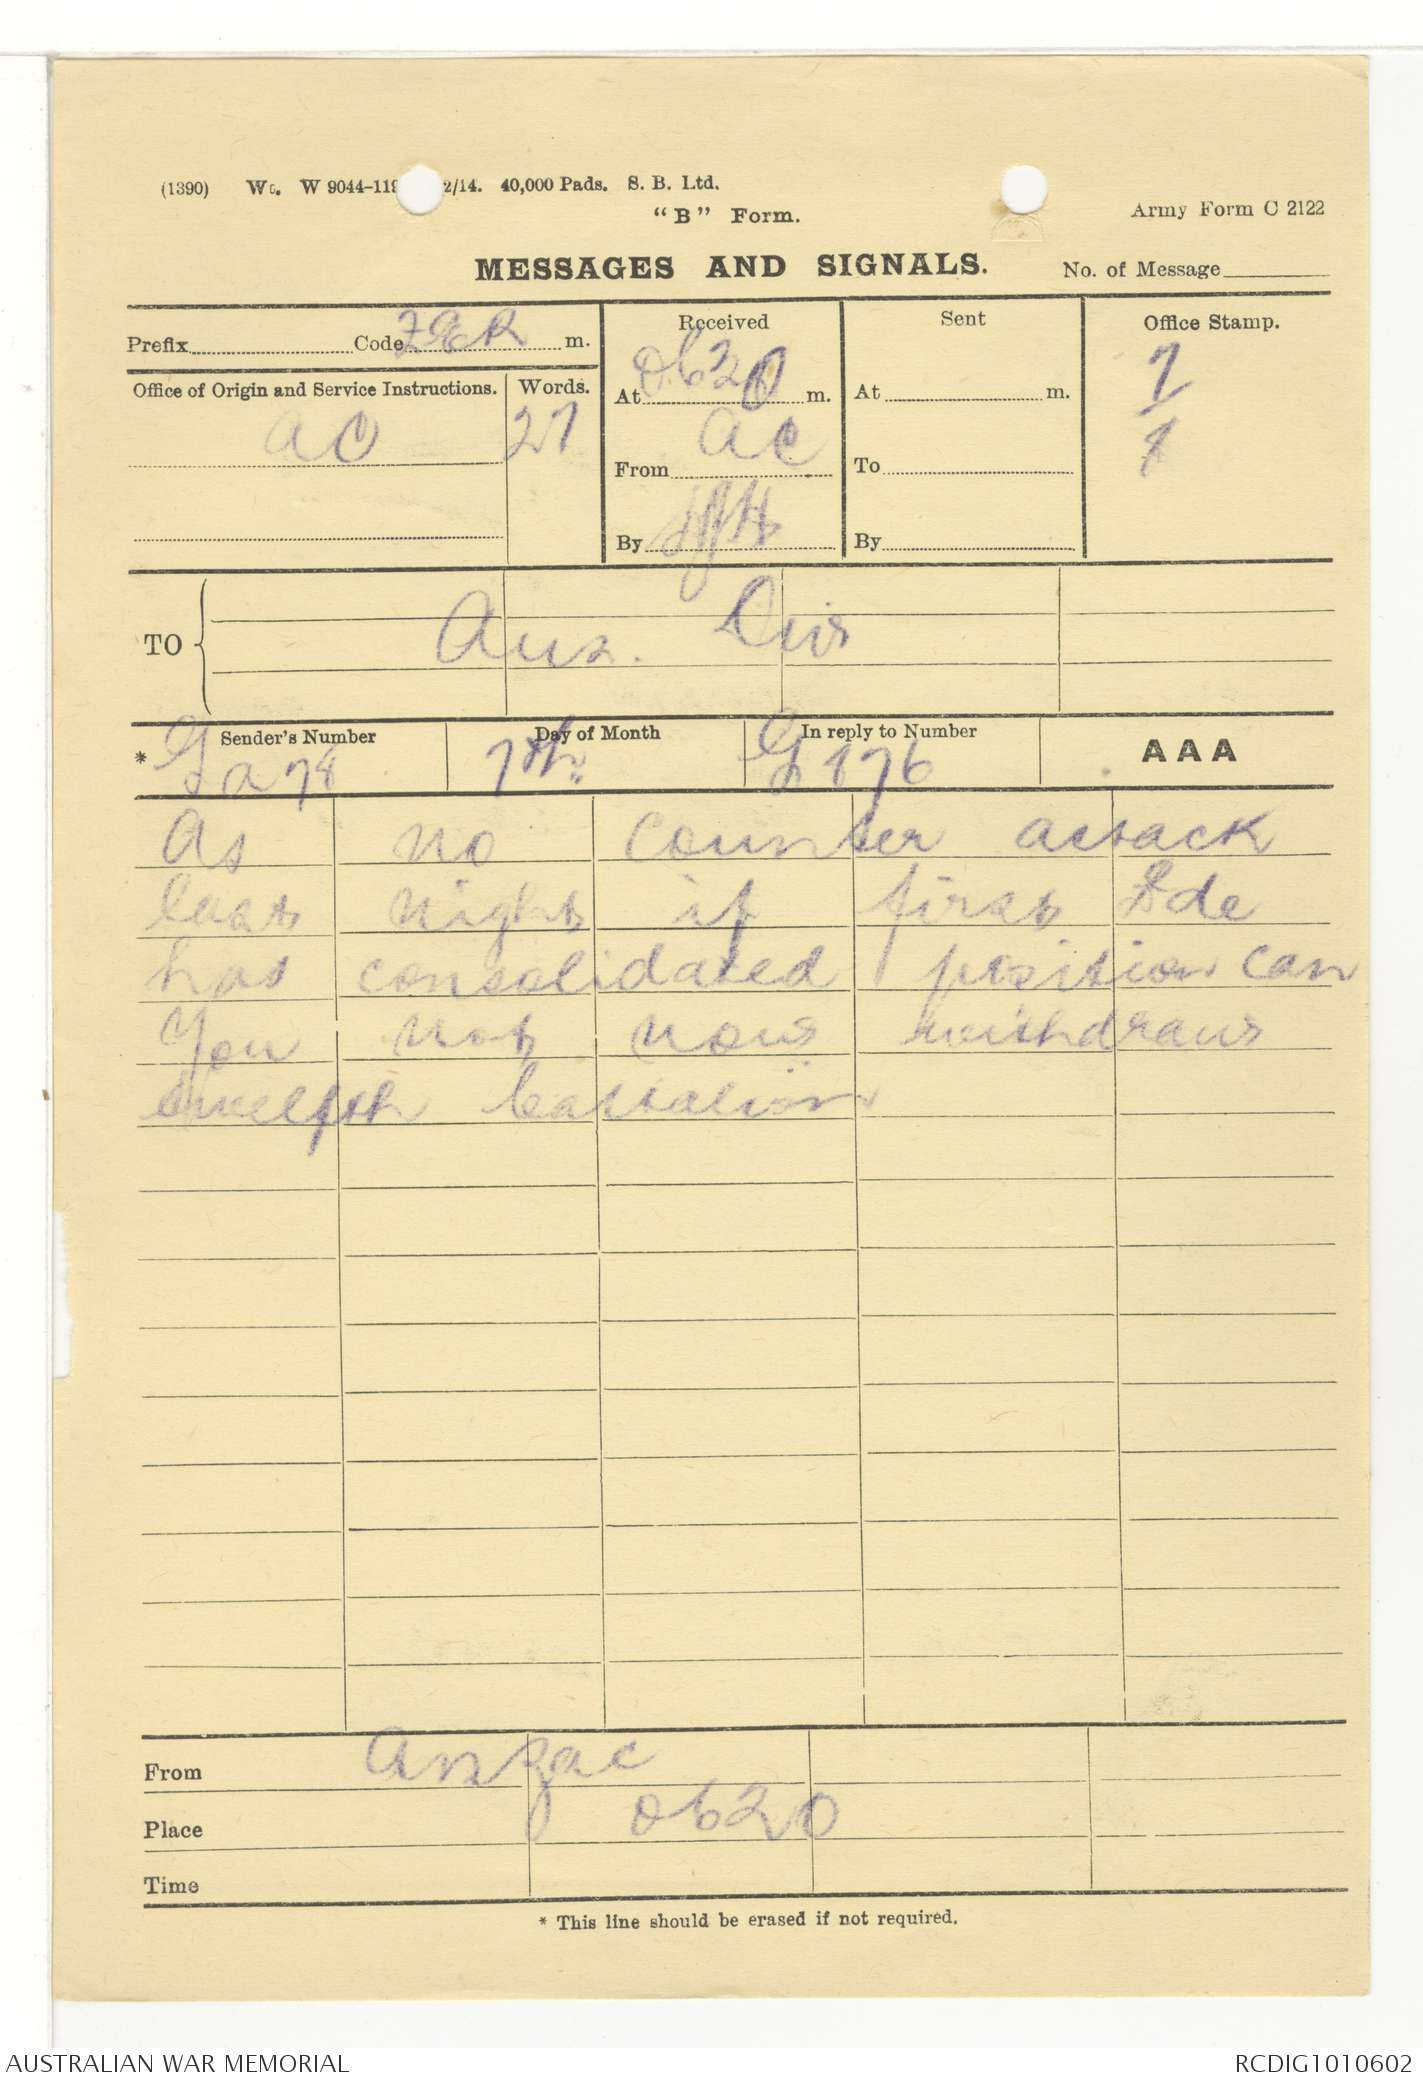 (1390) Wt. W 9044-119 2/14. 40,000 Pads. S. B. Ltd.
"B" Form.
Army Form C 2122
MESSAGES AND SIGNALS.
No. of Message
Prefix Code m.
Received
Sent
Office Stamp.
Office of Origin and Service Instructions.
Words.
At 0620 m.
At m.
7
8
AC
27
From AC
To
By
By
TO
Aus. Div
* Sender's Number
Day of Month
In reply to Number
AAA
Ga 78
7th
G 176
As no counter attack
last night if first Bde
has consolidated position can
you not now withdraw
twelfth battalion
From
Anzac
Place
0620
Time
* This line should be erased if not required.
AUSTRALIAN WAR MEMORIAL
RCDIG1010602